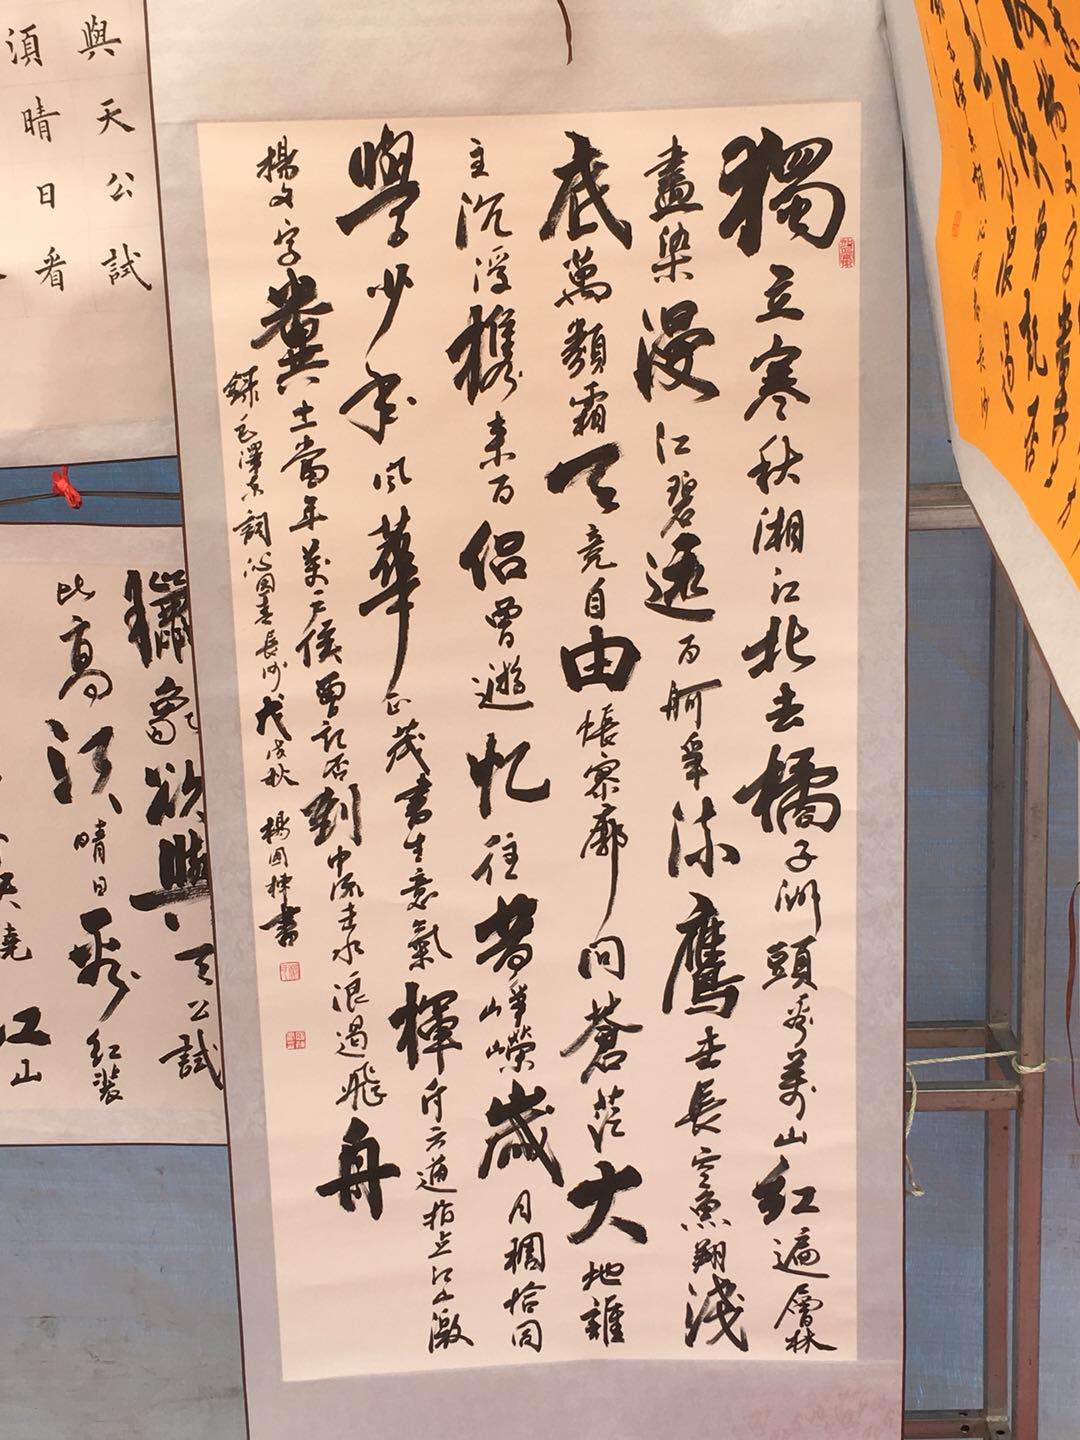 獨立寒秋湘江北去橘子洲頭看萬山紅遍層林
盡染漫江碧透百舸爭流鷹击長空魚翔淺
底萬類霜天竞自由悵寥廓問蒼茫大地誰
主沉浮携来百侣曾遊忆往昔崢嶸歲月稠恰同
學少年風華正茂書生意氣揮斥方遒指点江山激
揚文字糞土當年萬户侯曾記否到中流击水浪遏飛舟
錄毛澤东詞沁园春長沙戊戌秋 楊国棟書
與天公試
須晴日看
蠟象欲與天公試
比高須晴日看红裝
嬈江山
揚文字糞土
侯曾記否
水浪遏
沁園春長沙